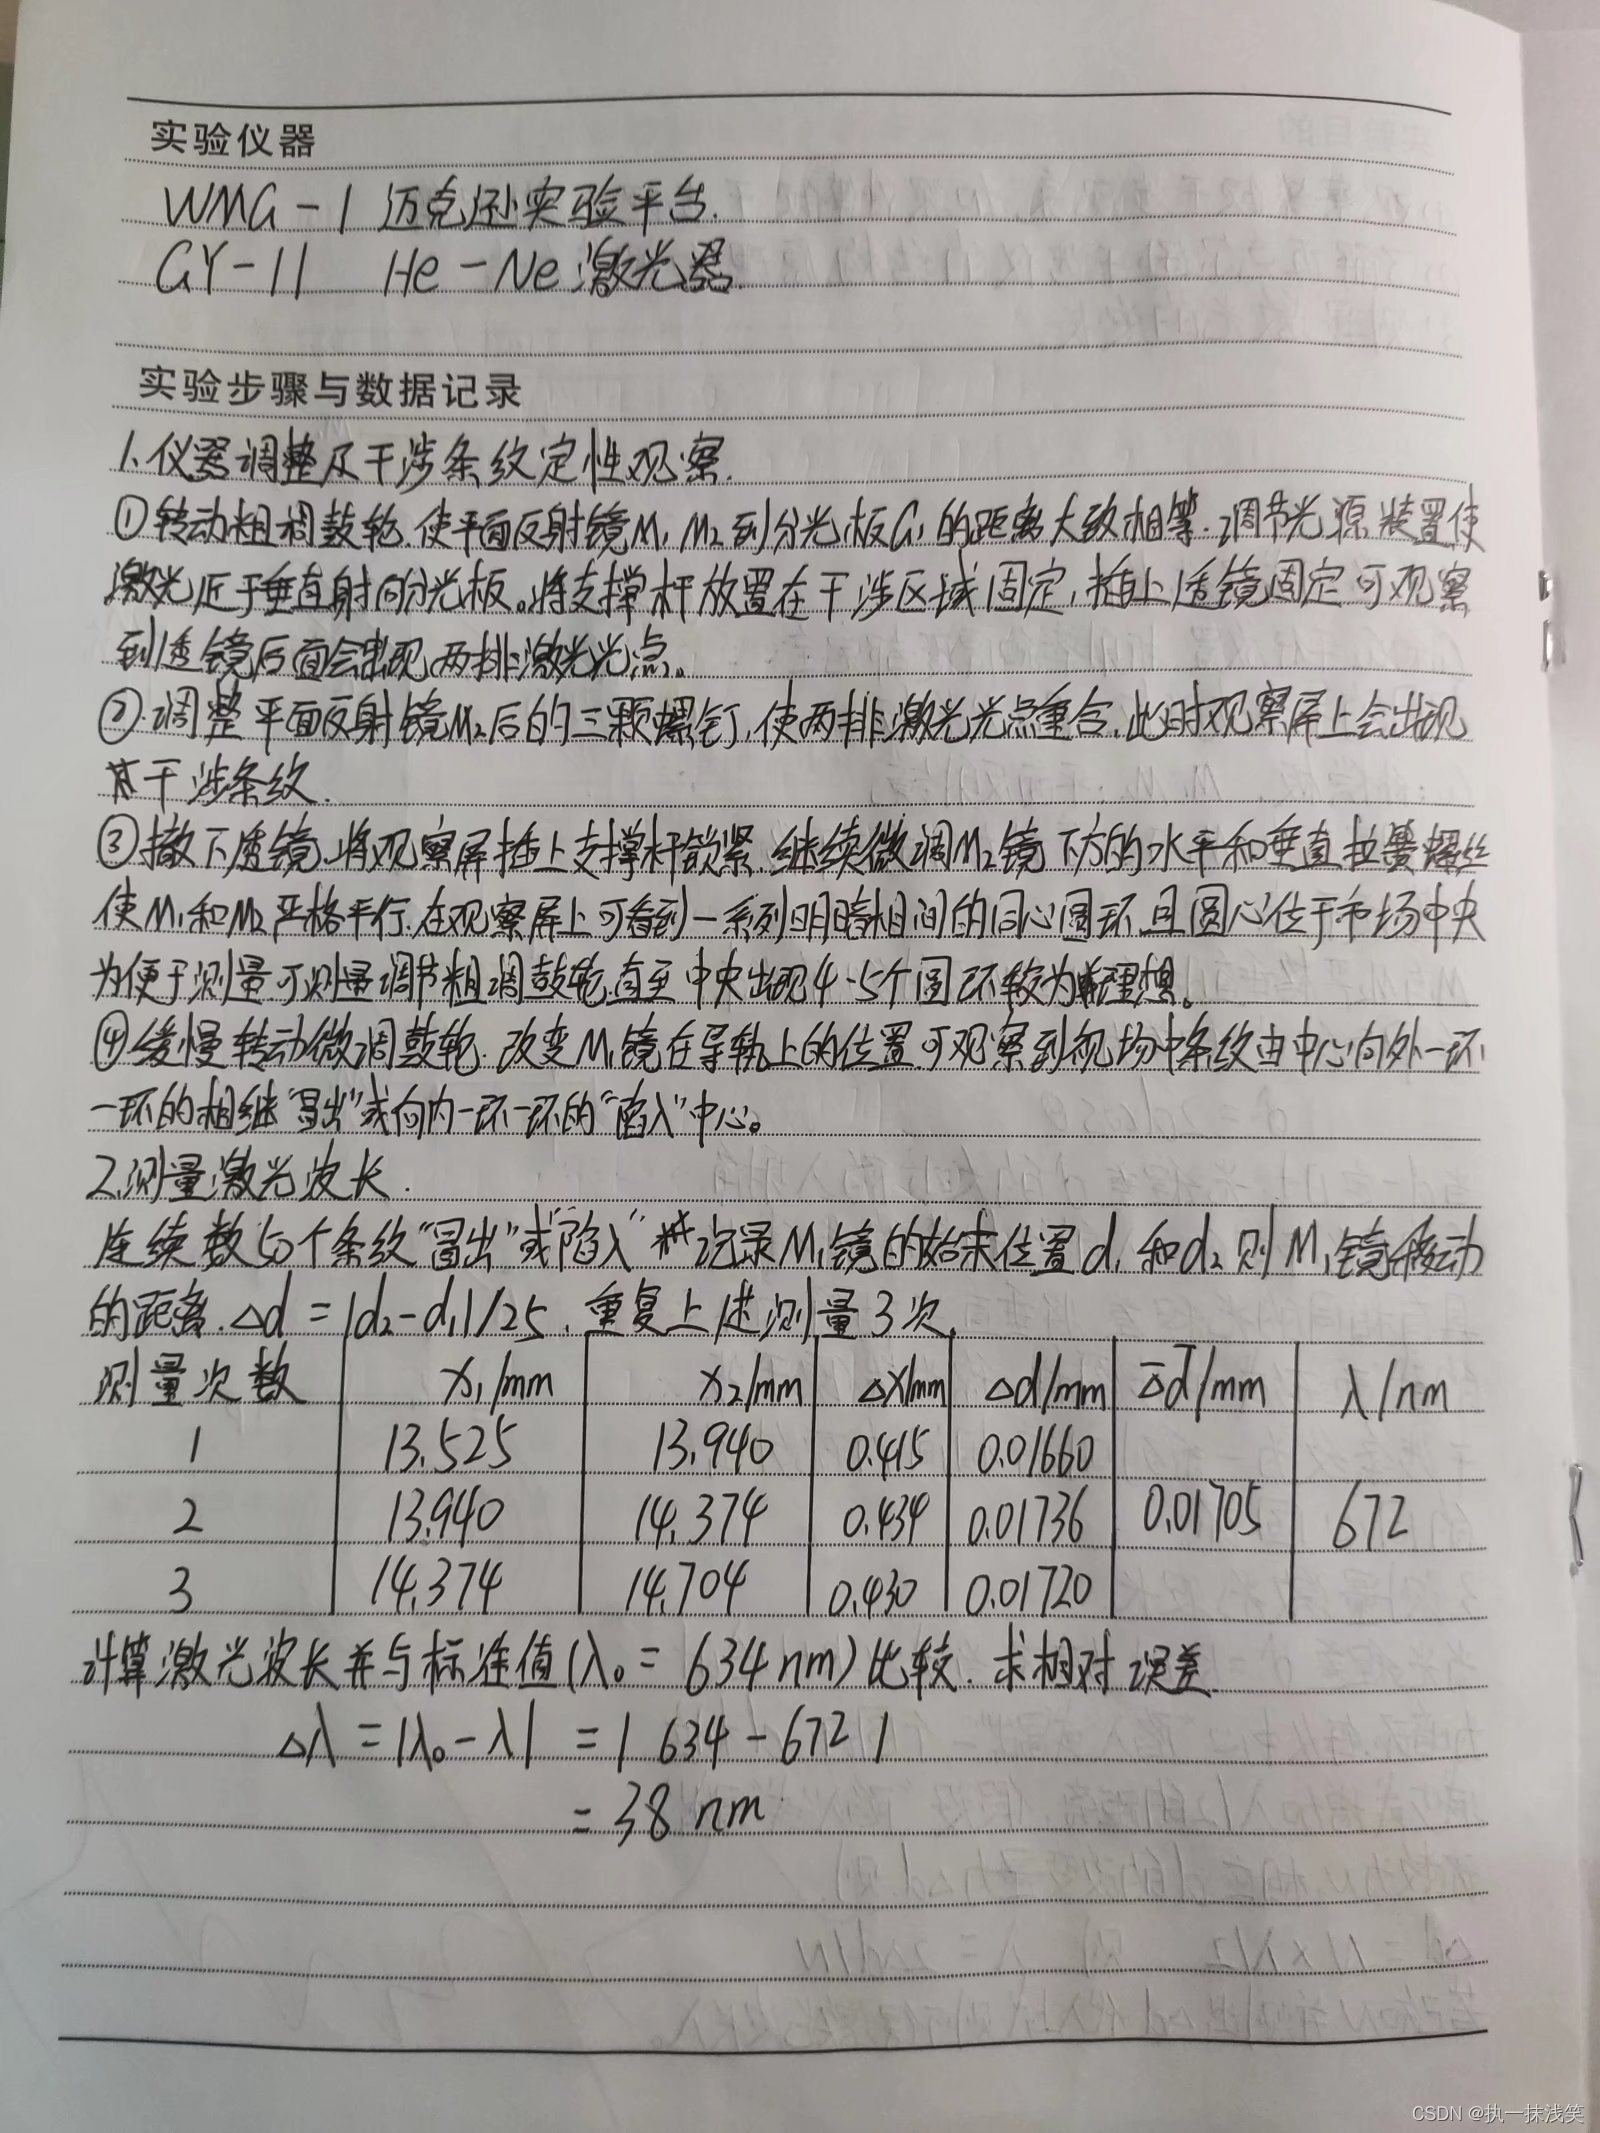 实验仪器
WMG-1 迈克逊实验平台.
GY-11 He-Ne激光器.
实验步骤与数据记录
1.仪器调整及干涉条纹定性观察.
①转动粗调鼓轮.使平面反射镜M₁ M₂到分光板G₁的距离大致相等.调节光源装置使
激光近于垂直射向分光板。将支撑杆放置在干涉区域固定,插上透镜固定可观察
到透镜后面会出现两排激光光点。
②.调整平面反射镜M₂后的三颗螺钉,使两排激光光点重合.此时观察屏上会出现
其干涉条纹.
③撤下透镜.将观察屏插上支撑杆锁紧.继续微调M₂镜下方的水平和垂直拉簧螺丝
使M₁和M₂严格平行.在观察屏上可看到一系列明暗相间的同心圆环.且圆心位于市场中央
为便于测量可测量调节粗调鼓轮.直至中央出现4-5个圆环较为理想。
④缓慢转动微调鼓轮.改变M₁镜在导轨上的位置.可观察到视场中条纹由中心向外一环
一环的相继"冒出"或向内一环一环的"陷入"中心。
2.测量激光波长.
连续数50个条纹"冒出"或"陷入" 记录M₁镜的始末位置d₁和d₂则M₁镜移动
的距离.Δd=|d₂-d₁|/25.重复上述测量3次.
测量次数 x₁/mm x₂/mm Δx/mm Δd/mm Δd̄/mm λ/nm
1 13.525 13.940 0.415 0.01660
2 13.940 14.374 0.434 0.01736 0.01705 672
3 14.374 14.704 0.430 0.01720
计算激光波长并与标准值(λ₀=634nm)比较.求相对误差.
Δλ=|λ₀-λ| =| 634-672 |
=38 nm
CSDN @执一抹浅笑